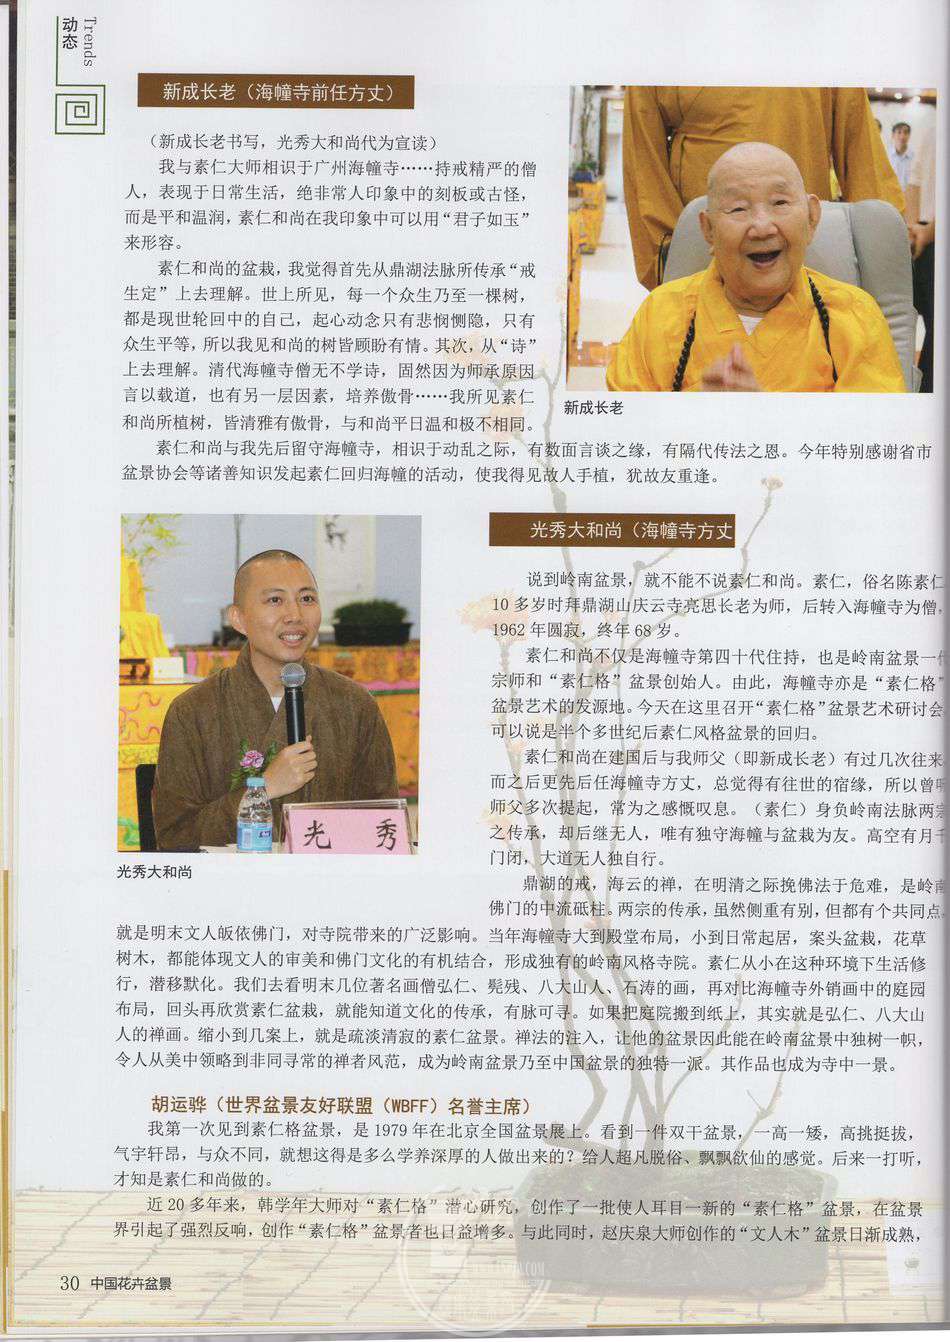 Trends
动态
新成长老（海幢寺前任方丈）
（新成长老书写，光秀大和尚代为宣读）
我与素仁大师相识于广州海幢寺……持戒精严的僧
人，表现于日常生活，绝非常人印象中的刻板或古怪，
而是平和温润，素仁和尚在我印象中可以用“君子如玉”
来形容。
素仁和尚的盆栽，我觉得首先从鼎湖法脉所传承“戒
生定”上去理解。世上所见，每一个众生乃至一棵树，
都是现世轮回中的自己，起心动念只有悲悯恻隐，只有
众生平等，所以我见和尚的树皆顾盼有情。其次，从“诗”
上去理解。清代海幢寺僧无不学诗，固然因为师承原因
言以载道，也有另一层因素，培养傲骨……我所见素仁
和尚所植树，皆清雅有傲骨，与和尚平日温和极不相同。
新成长老
素仁和尚与我先后留守海幢寺，相识于动乱之际，有数面言谈之缘，有隔代传法之恩。今年特别感谢省市
盆景协会等诸善知识发起素仁回归海幢的活动，使我得见故人手植，犹故友重逢。
光秀大和尚（海幢寺方丈
说到岭南盆景，就不能不说素仁和尚。素仁，俗名陈素仁
10 多岁时拜鼎湖山庆云寺亮思长老为师，后转入海幢寺为僧，
1962 年圆寂，终年 68 岁。
素仁和尚不仅是海幢寺第四十代住持，也是岭南盆景一代
宗师和“素仁格”盆景创始人。由此，海幢寺亦是“素仁格”
盆景艺术的发源地。今天在这里召开“素仁格”盆景艺术研讨会，
可以说是半个多世纪后素仁风格盆景的回归。
素仁和尚在建国后与我师父（即新成长老）有过几次往来，
而之后更先后任海幢寺方丈，总觉得有往世的宿缘，所以曾听
师父多次提起，常为之感慨叹息。（素仁）身负岭南法脉两宗
之传承，却后继无人，唯有独守海幢与盆栽为友。高空有月千
门闭，大道无人独自行。
鼎湖的戒，海云的禅，在明清之际挽佛法于危难，是岭南
佛门的中流砥柱。两宗的传承，虽然侧重有别，但都有个共同点，
光 秀
光秀大和尚
就是明末文人皈依佛门，对寺院带来的广泛影响。当年海幢寺大到殿堂布局，小到日常起居，案头盆栽，花草
树木，都能体现文人的审美和佛门文化的有机结合，形成独有的岭南风格寺院。素仁从小在这种环境下生活修
行，潜移默化。我们去看明末几位著名画僧弘仁、髡残、八大山人、石涛的画，再对比海幢寺外销画中的庭园
布局，回头再欣赏素仁盆栽，就能知道文化的传承，有脉可寻。如果把庭院搬到纸上，其实就是弘仁、八大山
人的禅画。缩小到几案上，就是疏淡清寂的素仁盆景。禅法的注入，让他的盆景因此能在岭南盆景中独树一帜，
令人从美中领略到非同寻常的禅者风范，成为岭南盆景乃至中国盆景的独特一派。其作品也成为寺中一景。
胡运骅（世界盆景友好联盟（WBFF）名誉主席）
我第一次见到素仁格盆景，是 1979 年在北京全国盆景展上。看到一件双干盆景，一高一矮，高挑挺拔，
气宇轩昂，与众不同，就想这得是多么学养深厚的人做出来的？给人超凡脱俗、飘飘欲仙的感觉。后来一打听，
才知是素仁和尚做的。
近 20 多年来，韩学年大师对“素仁格”潜心研究，创作了一批使人耳目一新的“素仁格”盆景，在盆景
界引起了强烈反响，创作“素仁格”盆景者也日益增多。与此同时，赵庆泉大师创作的“文人木”盆景日渐成熟，
30 中国花卉盆景